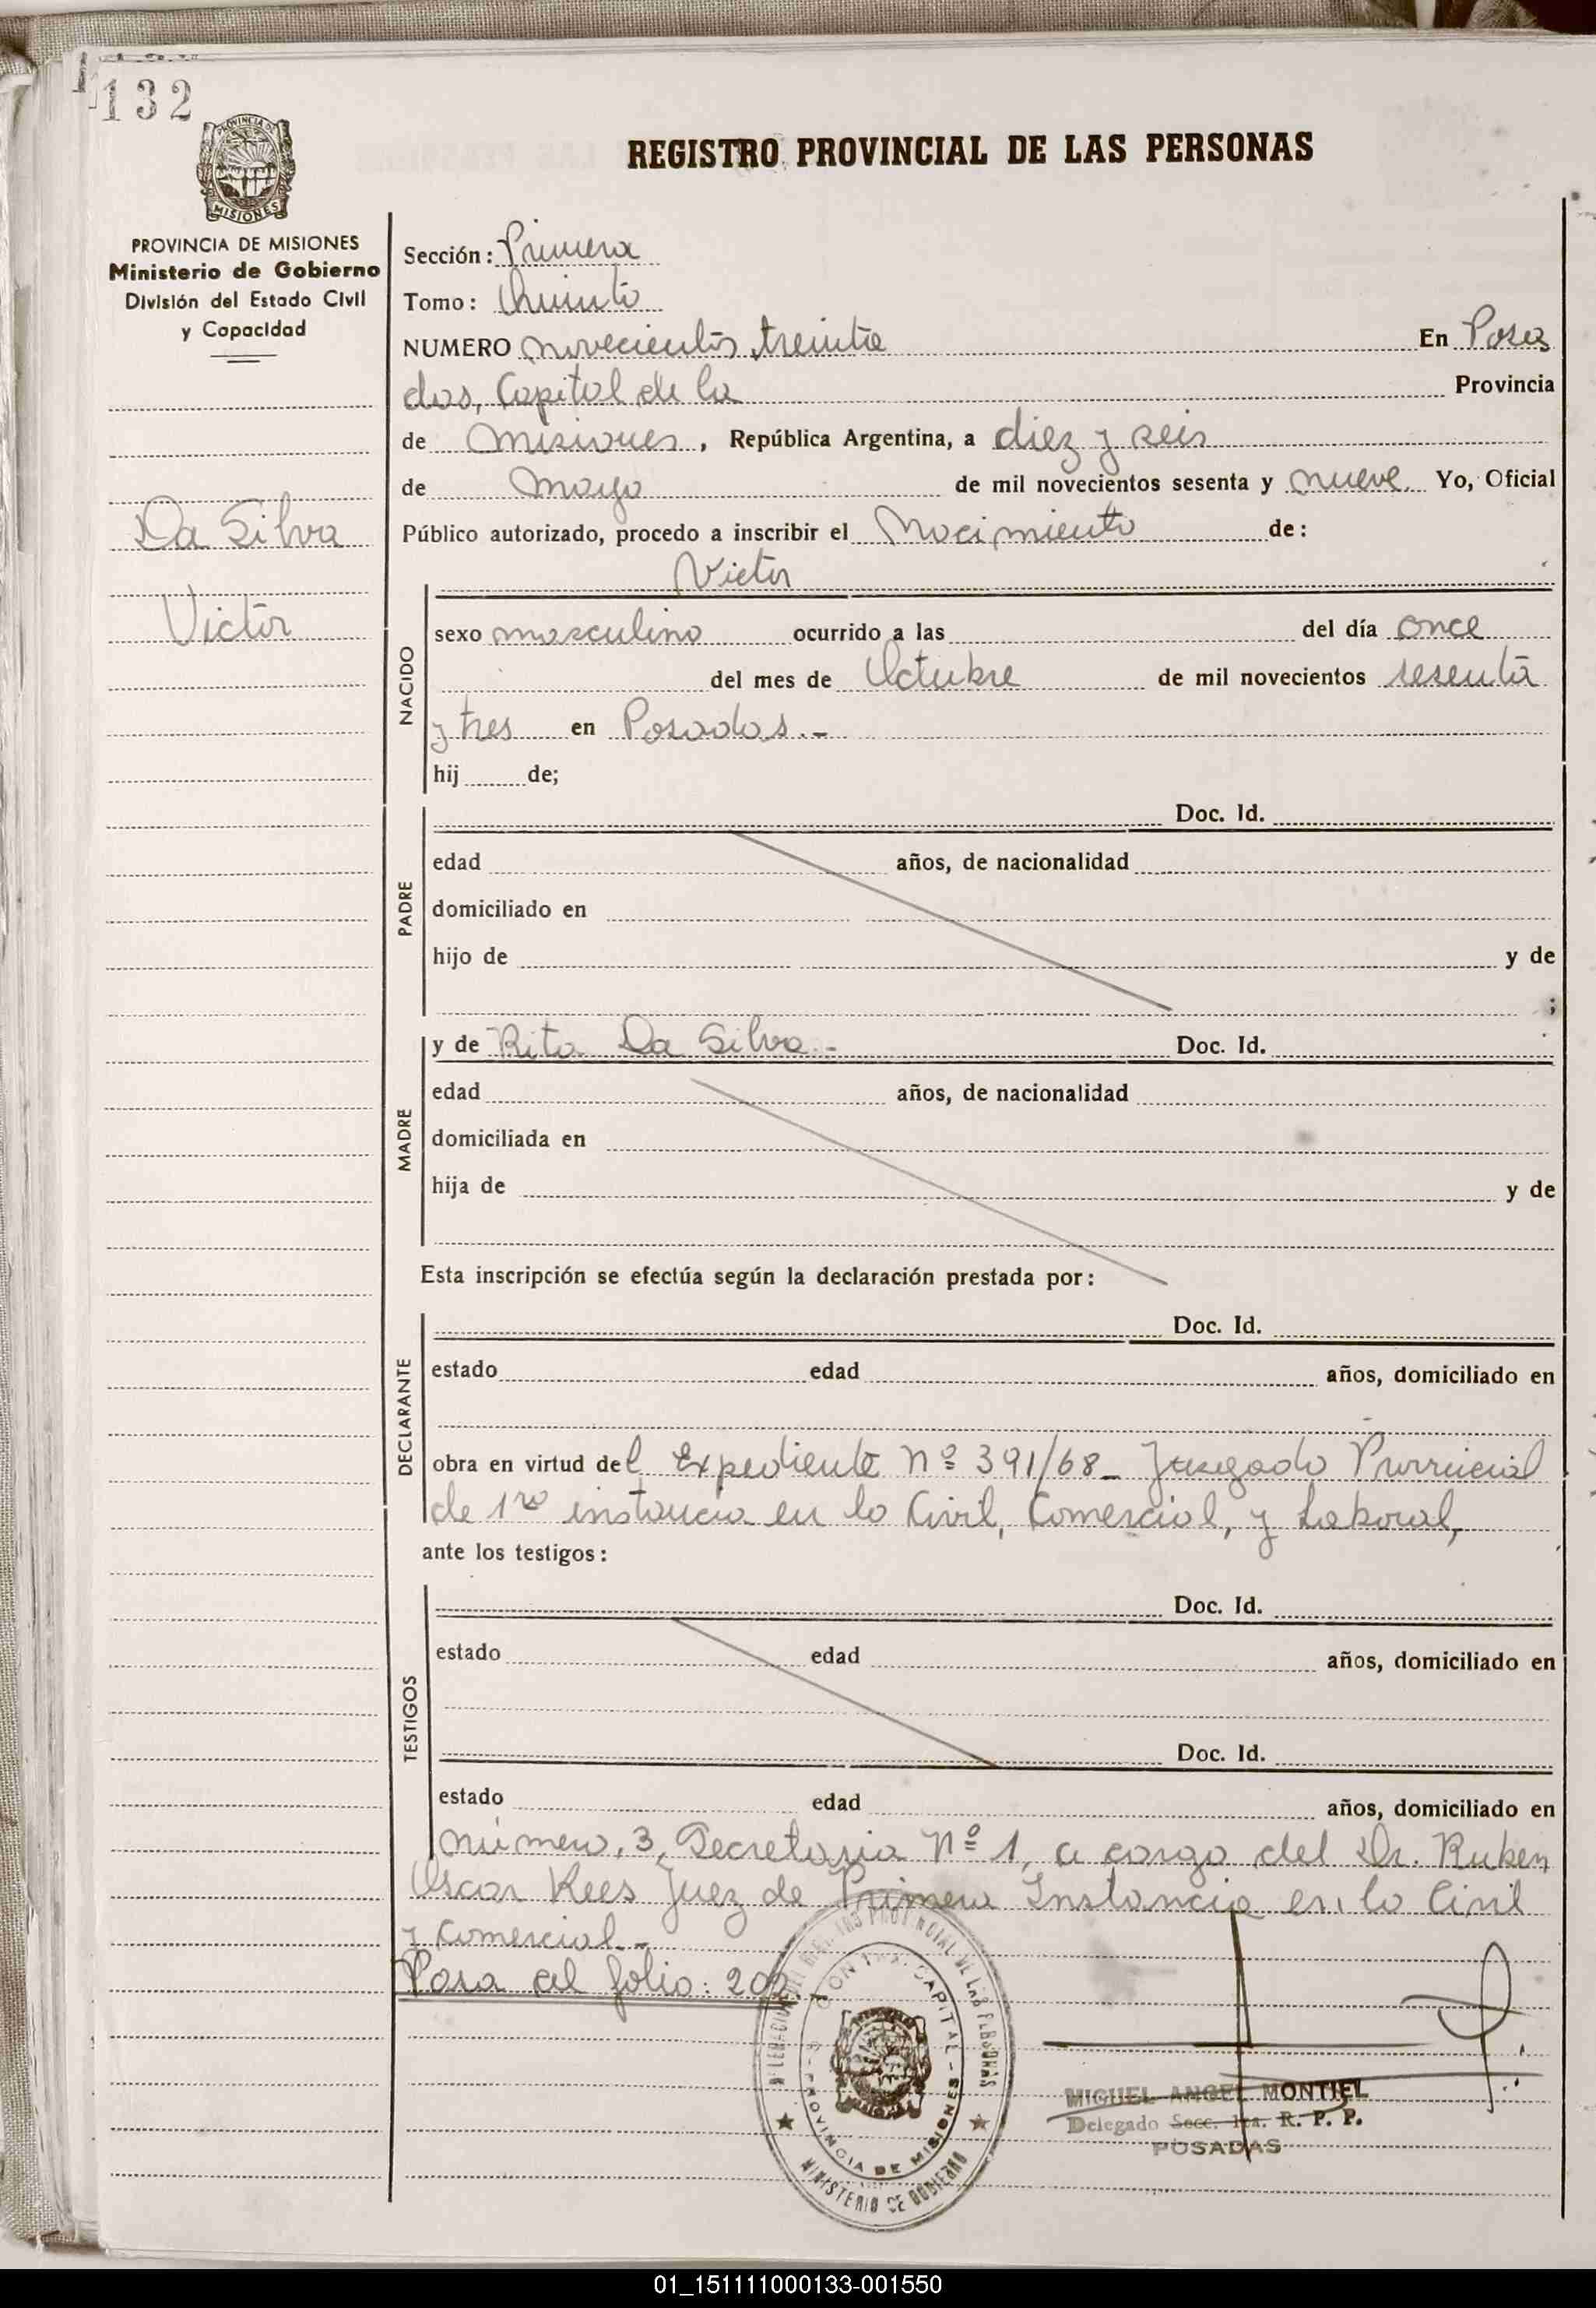 132
PROVINCIA DE
MISIONES
REGISTRO PROVINCIAL DE LAS PERSONAS
PROVINCIA DE MISIONES
Ministerio de Gobierno
División del Estado Civil
y Capacidad
Da Silva
Victor
Sección: Primera
Tomo: Quinto
NUMERO novecientos treinta En Posa
das, Capital de la Provincia
de Misiones, República Argentina, a diez y seis
de Mayo de mil novecientos sesenta y nueve Yo, Oficial
Público autorizado, procedo a inscribir el Nacimiento de:
Victor
NACIDO
sexo masculino ocurrido a las del día once
del mes de Octubre de mil novecientos sesenta
y tres en Posadas.-
hij de;
PADRE
Doc. Id.
edad años, de nacionalidad
domiciliado en
hijo de y de
;
MADRE
y de Rita Da Silva.- Doc. Id.
edad años, de nacionalidad
domiciliada en
hija de y de
Esta inscripción se efectúa según la declaración prestada por:
DECLARANTE
Doc. Id.
estado edad años, domiciliado en
obra en virtud del Expediente Nº 391/68_ Juzgado Provincial
de 1ra instancia en lo Civil, Comercial, y Laboral,
ante los testigos:
TESTIGOS
Doc. Id.
estado edad años, domiciliado en
Doc. Id.
estado edad años, domiciliado en
número, 3, Secretaria Nº 1, a cargo del Dr. Ruben
Oscar Rees Juez de Primera Instancia en lo Civil
y Comercial.-
Pasa al folio: 202
PROVINCIAL DE LAS PERSONAS
CAPITAL - PROVINCIA DE MISIONES
MINISTERIO DE GOBIERNO
MIGUEL ANGEL MONTIEL
Delegado Secc. 1ra. R. P. P.
POSADAS
01_151111000133-001550